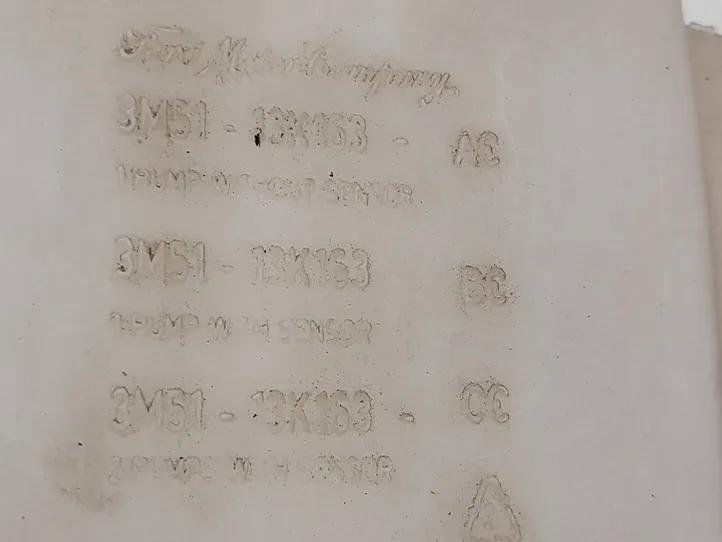 Ford Motor Company
3M51 - 13K163 - AC
1 PUMP WITHOUT SENSOR
3M51 - 13K163 BC
1 PUMP WITH SENSOR
3M51 - 13K163 - CC
2 PUMPS WITH SENSOR